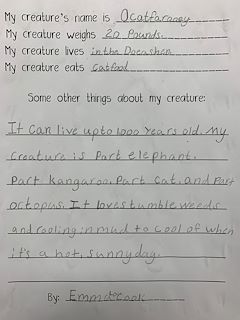 My creature's name is Ocatfaroney
My creature weighs 20 Pounds.
My creature lives in the Docashen
My creature eats Catfood
Some other things about my creature:
It Can live upto 1000 Years old. My
Creature is Part elephant.
Part Kangaroo, Part Cat, and Part
octopus. It loves tumble weeds
and rooling in mud to cool of when
it's a hot, sunny day.
By: Emmet Cook